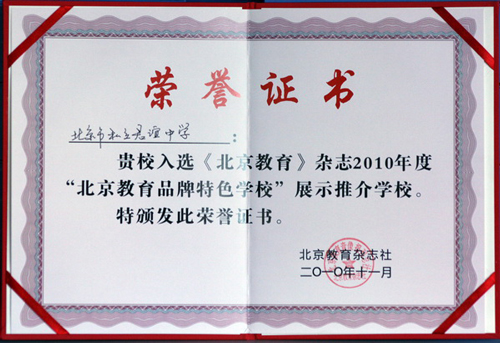 荣誉证书
北京市私立君谊中学：
贵校入选《北京教育》杂志2010年度
“北京教育品牌特色学校”展示推介学校。
特颁发此荣誉证书。
北京教育杂志社
二〇一〇年十一月